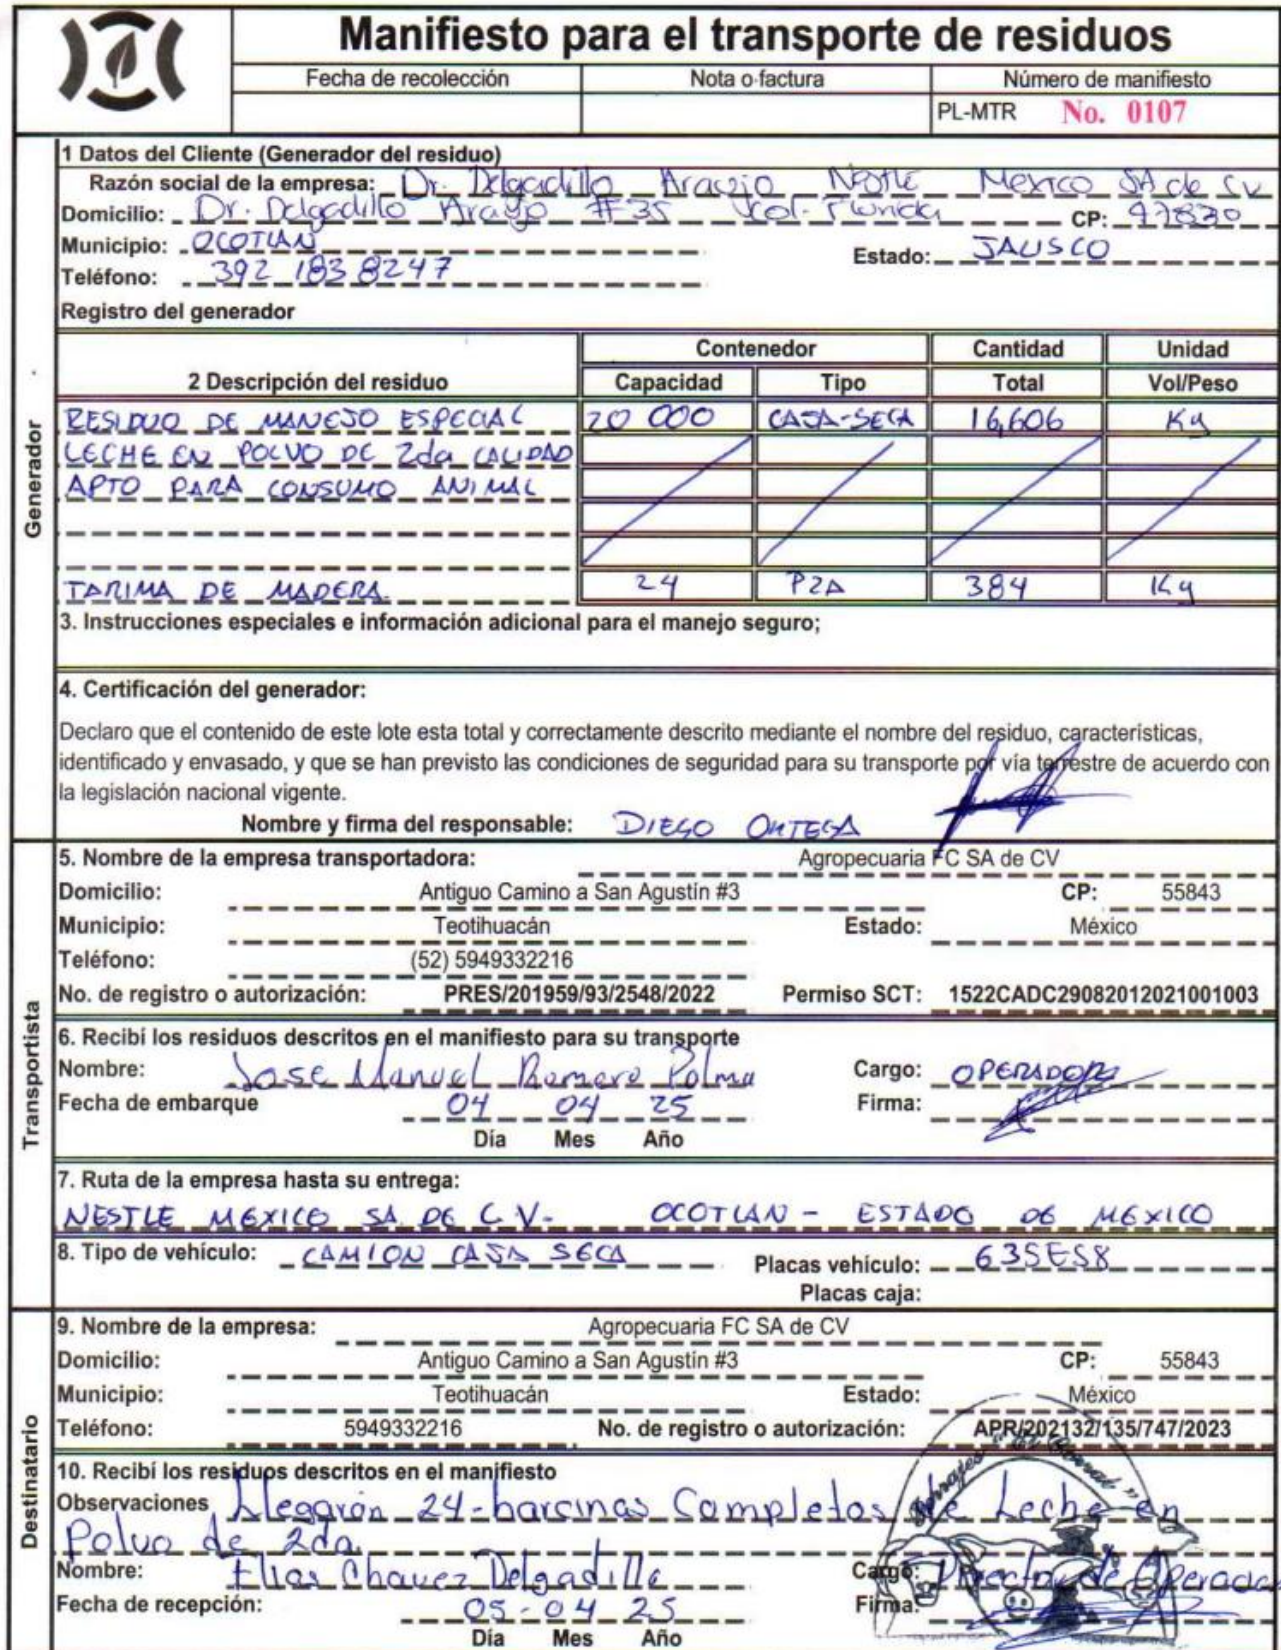 Manifiesto para el transporte de residuos
Fecha de recolección Nota o factura Número de manifiesto
PL-MTR No. 0107
Generador
1 Datos del Cliente (Generador del residuo)
Razón social de la empresa: Dr. Delgadillo Araujo Nestle Mexico SA de CV
Domicilio: Dr. Delgadillo Araujo #35 Col. Florida CP: 47830
Municipio: OCOTLAN Estado: JALISCO
Teléfono: 392 183 8247
Registro del generador
Contenedor Cantidad Unidad
2 Descripción del residuo Capacidad Tipo Total Vol/Peso
RESIDUO DE MANEJO ESPECIAL 20 000 CAJA-SECA 16,606 Kg
LECHE EN POLVO DE 2da CALIDAD
APTO PARA CONSUMO ANIMAL
TARIMA DE MADERA 24 PZA 384 Kg
3. Instrucciones especiales e información adicional para el manejo seguro;
4. Certificación del generador:
Declaro que el contenido de este lote esta total y correctamente descrito mediante el nombre del residuo, características,
identificado y envasado, y que se han previsto las condiciones de seguridad para su transporte por vía terrestre de acuerdo con
la legislación nacional vigente.
Nombre y firma del responsable: DIEGO ORTEGA
Transportista
5. Nombre de la empresa transportadora: Agropecuaria FC SA de CV
Domicilio: Antiguo Camino a San Agustín #3 CP: 55843
Municipio: Teotihuacán Estado: México
Teléfono: (52) 5949332216
No. de registro o autorización: PRES/201959/93/2548/2022 Permiso SCT: 1522CADC29082012021001003
6. Recibí los residuos descritos en el manifiesto para su transporte
Nombre: Jose Manuel Romero Palma Cargo: OPERADOR
Fecha de embarque 04 04 25 Firma:
Día Mes Año
7. Ruta de la empresa hasta su entrega:
NESTLE MEXICO SA DE C.V. OCOTLAN - ESTADO DE MEXICO
8. Tipo de vehículo: CAMION CAJA SECA Placas vehículo: 635ES8
Placas caja:
Destinatario
9. Nombre de la empresa: Agropecuaria FC SA de CV
Domicilio: Antiguo Camino a San Agustín #3 CP: 55843
Municipio: Teotihuacán Estado: México
Teléfono: 5949332216 No. de registro o autorización: APR/202132/135/747/2023
Forrajes "El Corral"
10. Recibí los residuos descritos en el manifiesto
Observaciones Llegarón 24-barcinas Completos de Leche en
Polvo de 2da
Nombre: Elias Chavez Delgadillo Cargo: Director de Operacion
Fecha de recepción: 05-04 25 Firma:
Día Mes Año